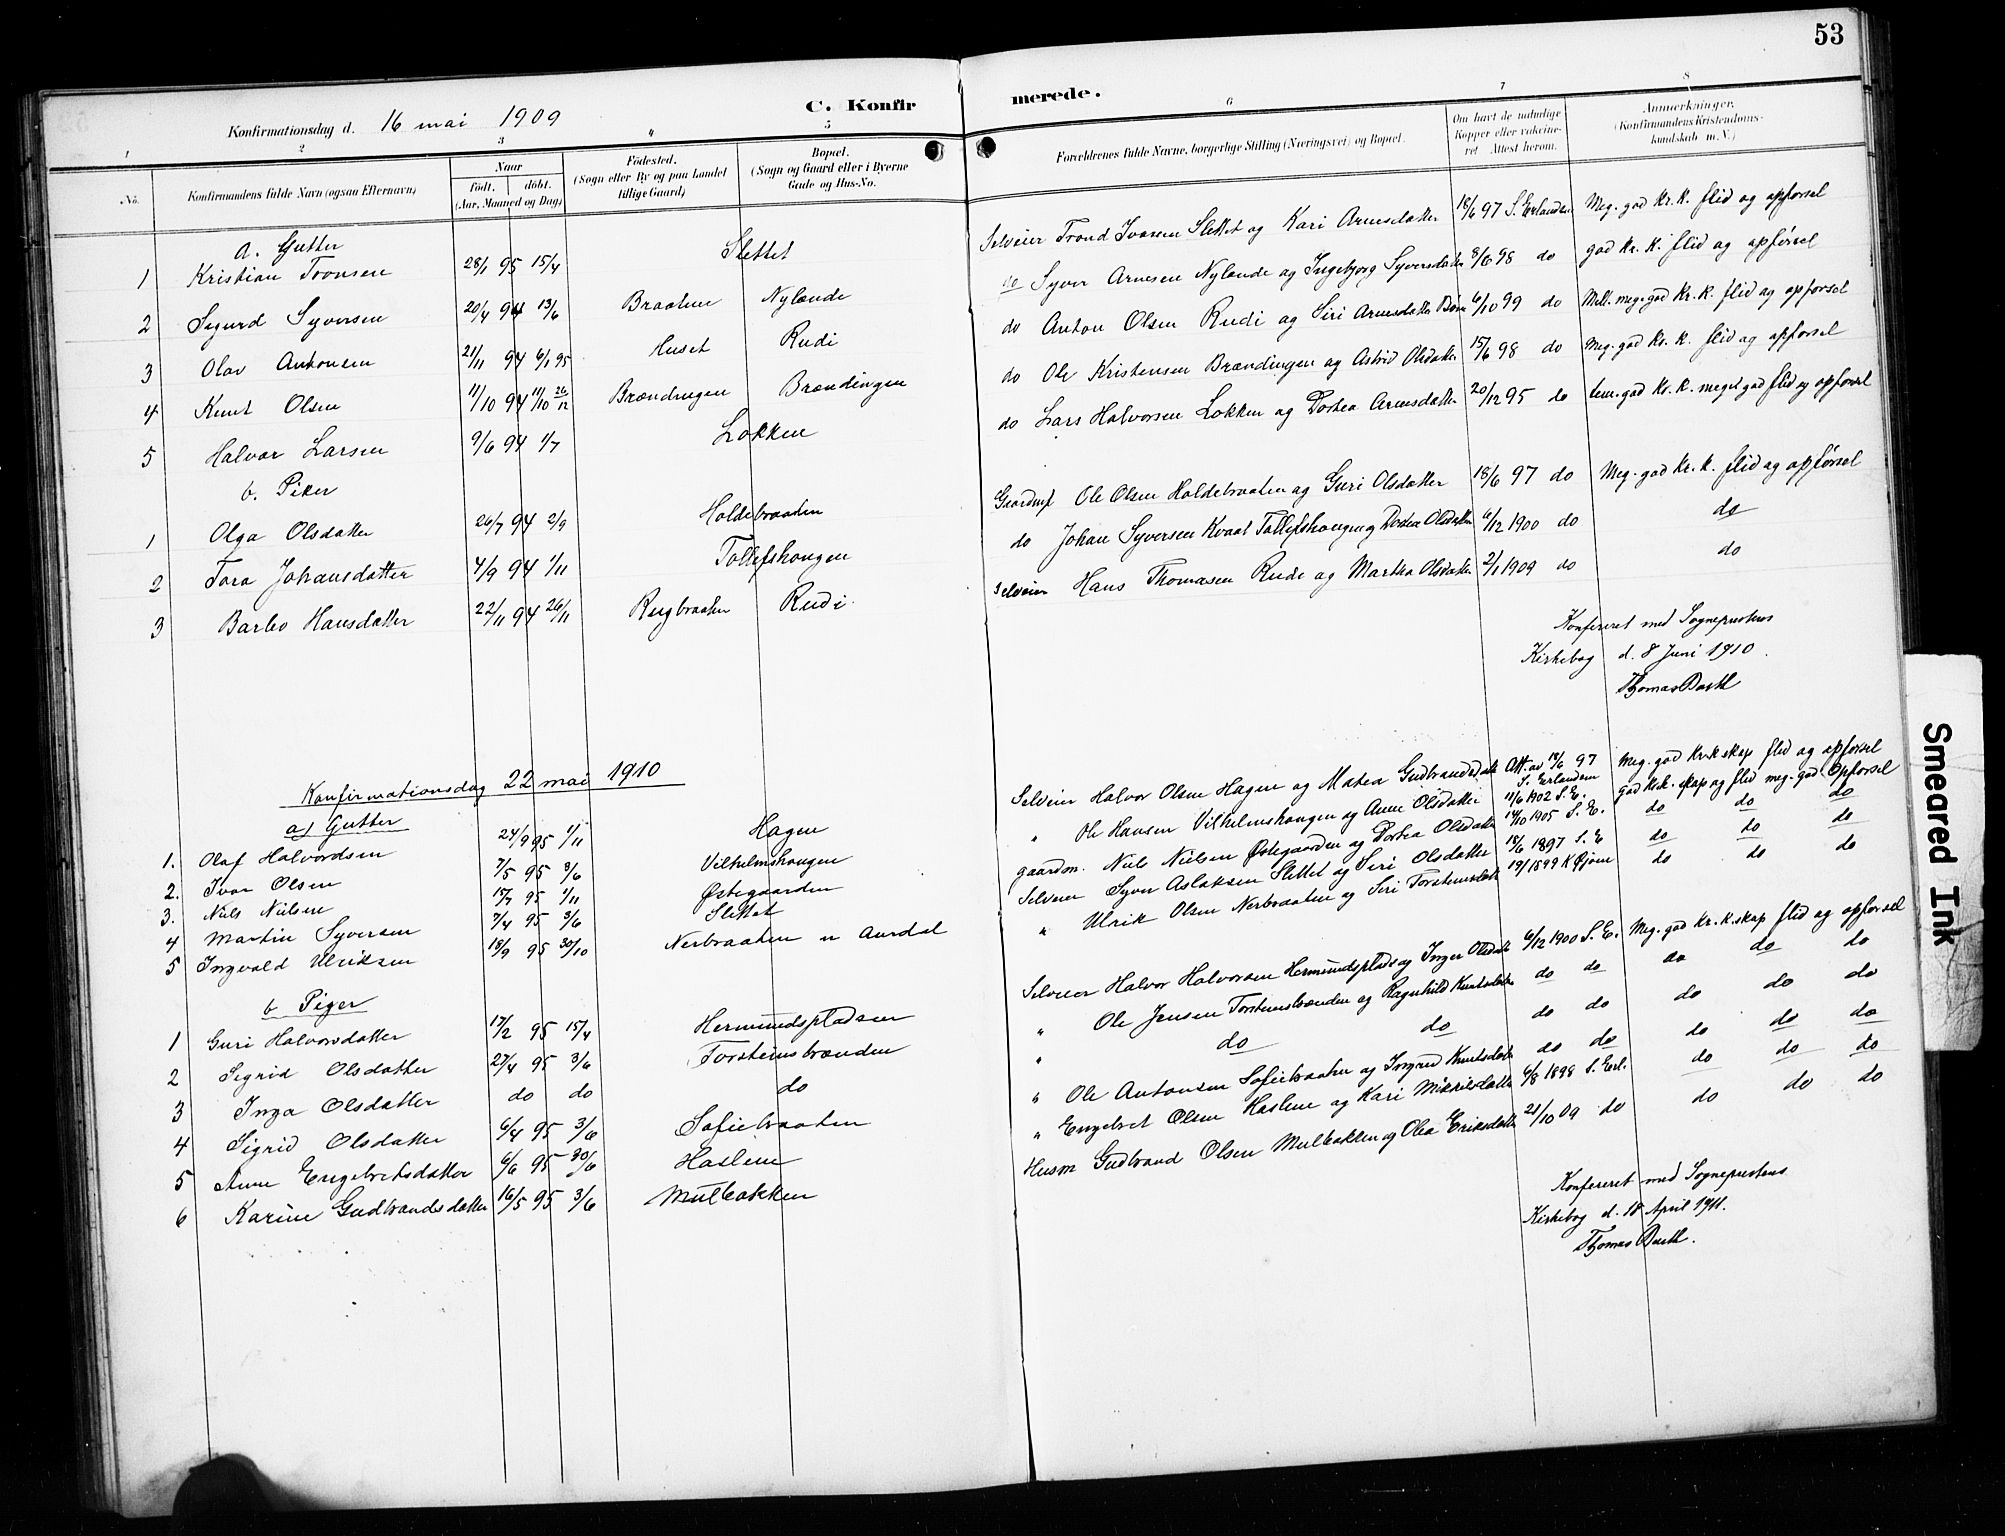 53
C. Konfirmerede.
Konfirmationsdag d. 16 mai 1909
1 2 3 4 5 6 7 8
No. Konfirmandens fulde Navn (ogsaa Efternavn) Naar født, døbt. (Aar, Maaned og Dag) Fødested. (Sogn eller By og paa Landet tillige Gaard) Bopæl. (Sogn og Gaard eller i Byerne Gade og Hus-No. Forældrenes fulde Navne, borgerlige Stilling (Næringsvei) og Bopæl. Om havt de naturlige Kopper eller vakcineret. Attest herom. Anmærkninger. (Konfirmandens Kristendomskundskab m.V.)
a. Gutter
1 Kristian Tronsen 28/1 95 15/4 Slettet Selveier Trond Ivarsen Slettet og Kari Arnesdatter 18/6 97 S. Erlandsen Meg. god Kr. K. flid og opførsel
2 Sigurd Syversen 20/4 94 13/6 Braaten Nylænde do Syver Arnesen Nylænde og Ingebjørg Syversdatter 8/6 98 do god Kr. K. flid og opførsel
3 Olav Antonsen 21/11 94 6/1 95 Huset Rudi do Anton Olsen Rudi og Siri Arnesdatter 6/10 99 do Mell. meg. god Kr. K. flid og opførsel
4 Knut Olsen 11/10 94 26/12 Brændingen Brændingen do Ole Kristensen Brændingen og Astrid Olsdatter 15/6 98 do Meg. god Kr. K. flid og opførsel
5 Halvor Larsen 9/6 94 1/7 Løkken do Lars Halvorsen Løkken og Dortea Arnesdatter 20/12 95 do tem. god Kr. K. meget god flid og opførsel
b. Piker
1 Olga Olsdatter 26/7 94 2/9 Holdebraaten Gaardm. Ole Olsen Holdebraaten og Guri Olsdatter 18/6 97 do Meg. god Kr. K. flid og opførsel
2 Tora Johansdatter 4/9 94 1/11 Tollefshougen do Johan Syversen Kvaal Tollefshougen og Dortea Olsdatter 6/12 1900 do do
3 Barbo Hansdatter 22/11 94 26/11 Rugbraaten Rudi Selveier Hans Thomasen Rudi og Martha Olsdatter 2/1 1909 do do
Konfereret med Sogneprestens
Kirkebog d. 8 Juni 1910.
Thomas Barth
Konfirmationsdag 22 mai 1910
a) Gutter
1. Olaf Halvordsen 24/9 95 1/11 Hagen Selveier Halvor Olsen Hagen og Matea Gudbrandsdatter Att. av 18/6 97 S. Erlandsen Meg. god Kr.k.skap flid og opførsel
2. Ivar Olsen 7/5 95 3/6 Vilhelmshougen " Ole Hansen Vilhelmshougen og Anne Olsdatter 11/6 1902 S.E. god Krk. skap og flid meg. god Opførsel
3. Niels Nielsen 15/7 95 1/11 Østegaarden gaardm. Niels Nielsen Østegaarden og Dortea Olsdatter 14/10 1905 S.E. do do do
4 Martin Syversen 7/4 95 3/6 Slettet Selveier Syver Aslaksen Slettet og Siri Olsdatter 18/6 1897 S.E do do do
5 Ingvald Ulriksen 18/9 95 30/10 Nerbraaten n Aurdal " Ulrik Olsen Nerbraaten og Siri Torstensdatter 1899 K Gjør do do do
b Piger
1 Guri Halvorsdatter 17/2 95 15/4 Hermundspladsen Selveier Halvor Halvorsen Hermundsplads og Inger Olsdatter 6/12 1900 S.E. Meg. god Kr. k. skap flid og opførsel
2 Sigrid Olsdatter 27/4 95 3/6 Torsteinsbrænden " Ole Jensen Torstensbrænden og Ragnhild Knutsdatter do do do do do
3 Inga Olsdatter do do do " do do do do do do do
4 Sigrid Olsdatter 6/4 95 3/6 Sofiebraaten " Ole Antonsen Sofiebraaten og Ingrid Knutsdatter do do do do do
5 Anne Engebretsdatter 6/6 95 30/6 Haslene " Engebret Olsen Haslene og Kari Mikkelsdatter 6/8 1898 S. Erl. do do do
6 Karine Gudbrandsdatter 16/5 95 3/6 Mulbakken Husm Gudbrand Olsen Mulbakken og Olea Eriksdatter 21/10 09 do do do do
Konfereret med Sogneprestens
Kirkebog d. 18 April 1911.
Thomas Barth.
Smeared Ink